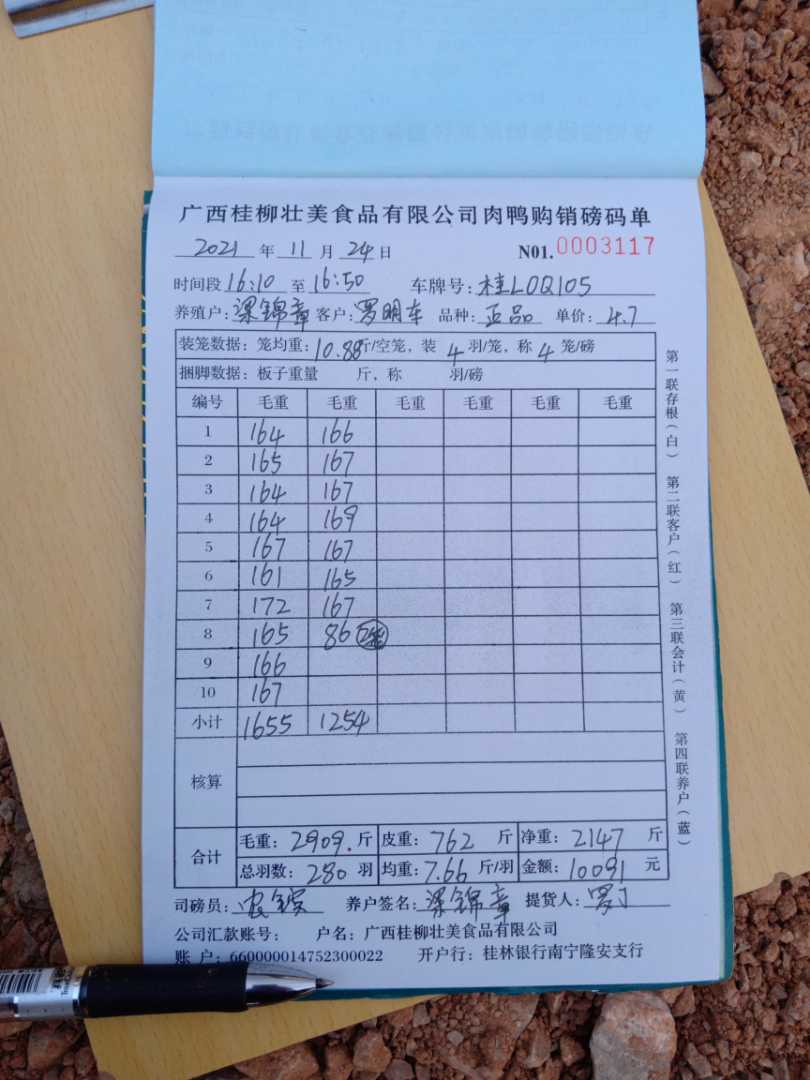 广西桂柳壮美食品有限公司肉鸭购销磅码单
2021 年 11 月 24 日 N01.0003117
时间段 16:10 至 16:50 车牌号: 桂L0Q105
养殖户: 梁锦章 客户: 罗明车 品种: 正品 单价: 4.7
装笼数据: 笼均重: 10.88 斤/空笼, 装 4 羽/笼, 称 4 笼/磅
捆脚数据: 板子重量 斤, 称 羽/磅
编号 毛重 毛重 毛重 毛重 毛重 毛重
1 164 166
2 165 167
3 164 167
4 164 169
5 167 167
6 161 165
7 172 167
8 165 86
9 166
10 167
小计 1655 1254
核算
合计 毛重: 2909. 斤 皮重: 762 斤 净重: 2147 斤
总羽数: 280 羽 均重: 7.66 斤/羽 金额: 10091 元
司磅员: 养户签名: 梁锦章 提货人:
公司汇款账号: 户名: 广西桂柳壮美食品有限公司
账 户: 660000014752300022 开户行: 桂林银行南宁隆安支行
第一联存根(白) 第二联客户(红) 第三联会计(黄) 第四联养户(蓝)